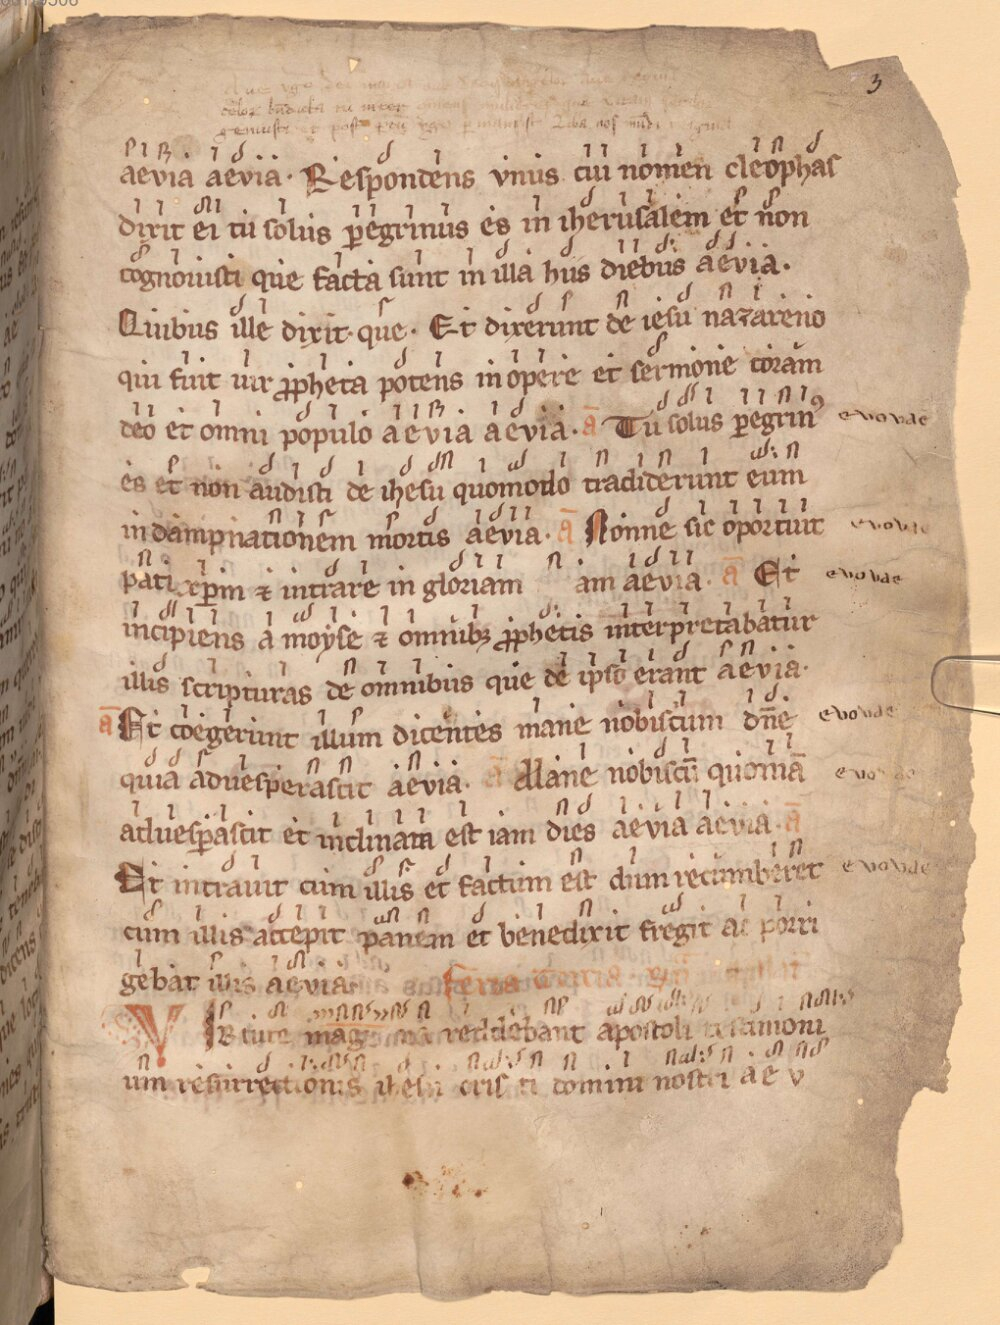 3
aevia aevia. Respondens vnus cui nomen cleophas
dixit ei tu solus peregrinus es in iherusalem et non
cognouisti que facta sunt in illa hiis diebus aevia.
Quibus ille dixit que. Et dixerunt de iesu nazareno
qui fuit uir ꝓpheta potens in opere et sermone coram
deo et omni populo aevia aevia. ā Tu solus ꝑegrinꝰ evovae
es et non audisti de ihesu quomodo tradiderunt eum
in dampnationem mortis aevia. ā Nonne sic oportuit evovae
pati xp̄m ⁊ intrare in gloriam am aevia. ā Et evovae
incipiens a moyse ⁊ omnibꝫ ꝓphetis interpretabatur
illis scripturas de omnibus que de ipso erant aevia.
ā Et coegerunt illum dicentes mane nobiscum dn̄e evovae
quia aduesperascit aevia. ā Mane nobiscū quoniā evovae
aduesꝑascit et inclinata est iam dies aevia aevia. ā
Et intrauit cum illis et factum est dum recumberet evovae
cum illis accepit panem et benedixit fregit ac porri
gebat illis aevia. feria tercia
VIrtute magna reddebant apostoli testimoni
um resurrectionis ihesu cristi domini nostri aev